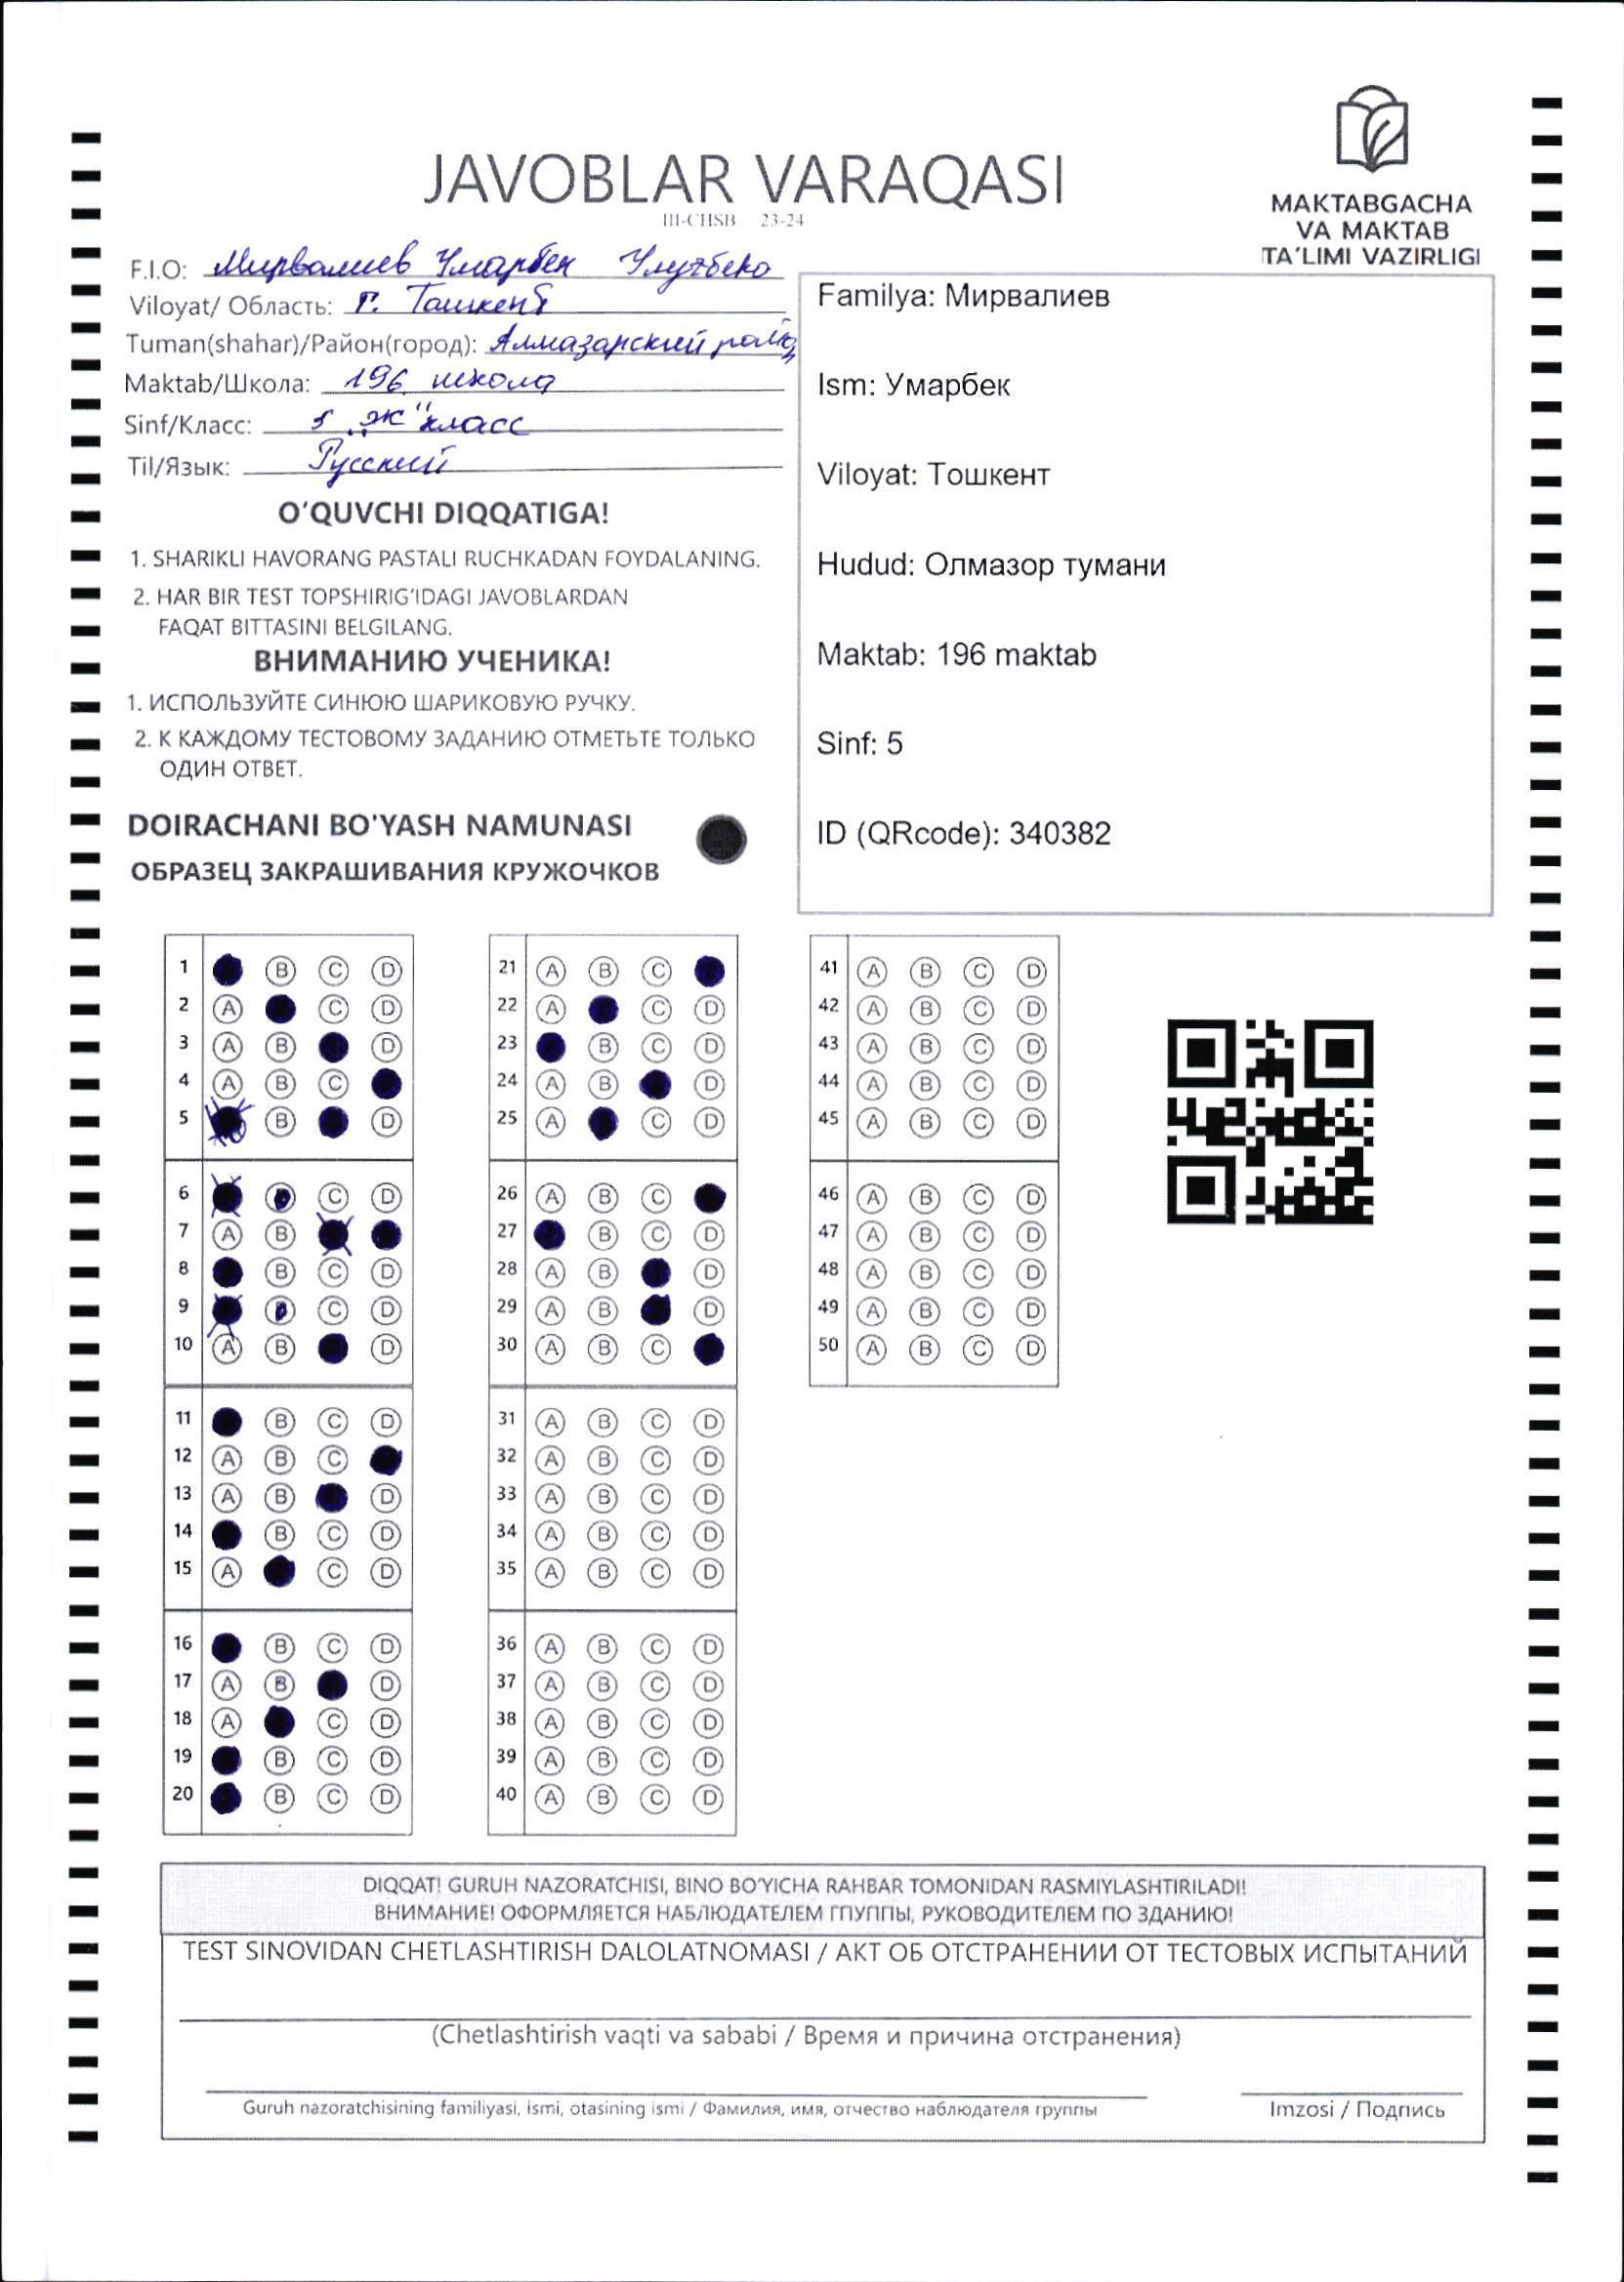 JAVOBLAR VARAQASI
III-CHSB 23-24
MAKTABGACHA
VA MAKTAB
TA'LIMI VAZIRLIGI
F.I.O: Мирвалиев Умарбек
Viloyat/ Область: г. Ташкент
Tuman(shahar)/Район(город): Алмазарский
Maktab/Школа: 196 школа
Sinf/Класс: 5 „Ж" класс
Til/Язык: Русский
O'QUVCHI DIQQATIGA!
1. SHARIKLI HAVORANG PASTALI RUCHKADAN FOYDALANING.
2. HAR BIR TEST TOPSHIRIG'IDAGI JAVOBLARDAN
FAQAT BITTASINI BELGILANG.
ВНИМАНИЮ УЧЕНИКА!
1. ИСПОЛЬЗУЙТЕ СИНЮЮ ШАРИКОВУЮ РУЧКУ.
2. К КАЖДОМУ ТЕСТОВОМУ ЗАДАНИЮ ОТМЕТЬТЕ ТОЛЬКО
ОДИН ОТВЕТ.
DOIRACHANI BO'YASH NAMUNASI
ОБРАЗЕЦ ЗАКРАШИВАНИЯ КРУЖОЧКОВ
Familya: Мирвалиев
Ism: Умарбек
Viloyat: Тошкент
Hudud: Олмазор тумани
Maktab: 196 maktab
Sinf: 5
ID (QRcode): 340382
1 B C D
2 A C D
3 A B D
4 A B C
5 B D
6 C D
7 A B
8 B C D
9 C D
10 A B D
11 B C D
12 A B C
13 A B D
14 B C D
15 A C D
16 B C D
17 A B D
18 A C D
19 B C D
20 B C D
21 A B C
22 A C D
23 B C D
24 A B D
25 A C D
26 A B C
27 B C D
28 A B D
29 A B D
30 A B C
31 A B C D
32 A B C D
33 A B C D
34 A B C D
35 A B C D
36 A B C D
37 A B C D
38 A B C D
39 A B C D
40 A B C D
41 A B C D
42 A B C D
43 A B C D
44 A B C D
45 A B C D
46 A B C D
47 A B C D
48 A B C D
49 A B C D
50 A B C D
DIQQAT! GURUH NAZORATCHISI, BINO BO'YICHA RAHBAR TOMONIDAN RASMIYLASHTIRILADI!
ВНИМАНИЕ! ОФОРМЛЯЕТСЯ НАБЛЮДАТЕЛЕМ ГПУППЫ, РУКОВОДИТЕЛЕМ ПО ЗДАНИЮ!
TEST SINOVIDAN CHETLASHTIRISH DALOLATNOMASI / АКТ ОБ ОТСТРАНЕНИИ ОТ ТЕСТОВЫХ ИСПЫТАНИЙ
(Chetlashtirish vaqti va sababi / Время и причина отстранения)
Guruh nazoratchisining familiyasi, ismi, otasining ismi / Фамилия, имя, отчество наблюдателя группы
Imzosi / Подпись